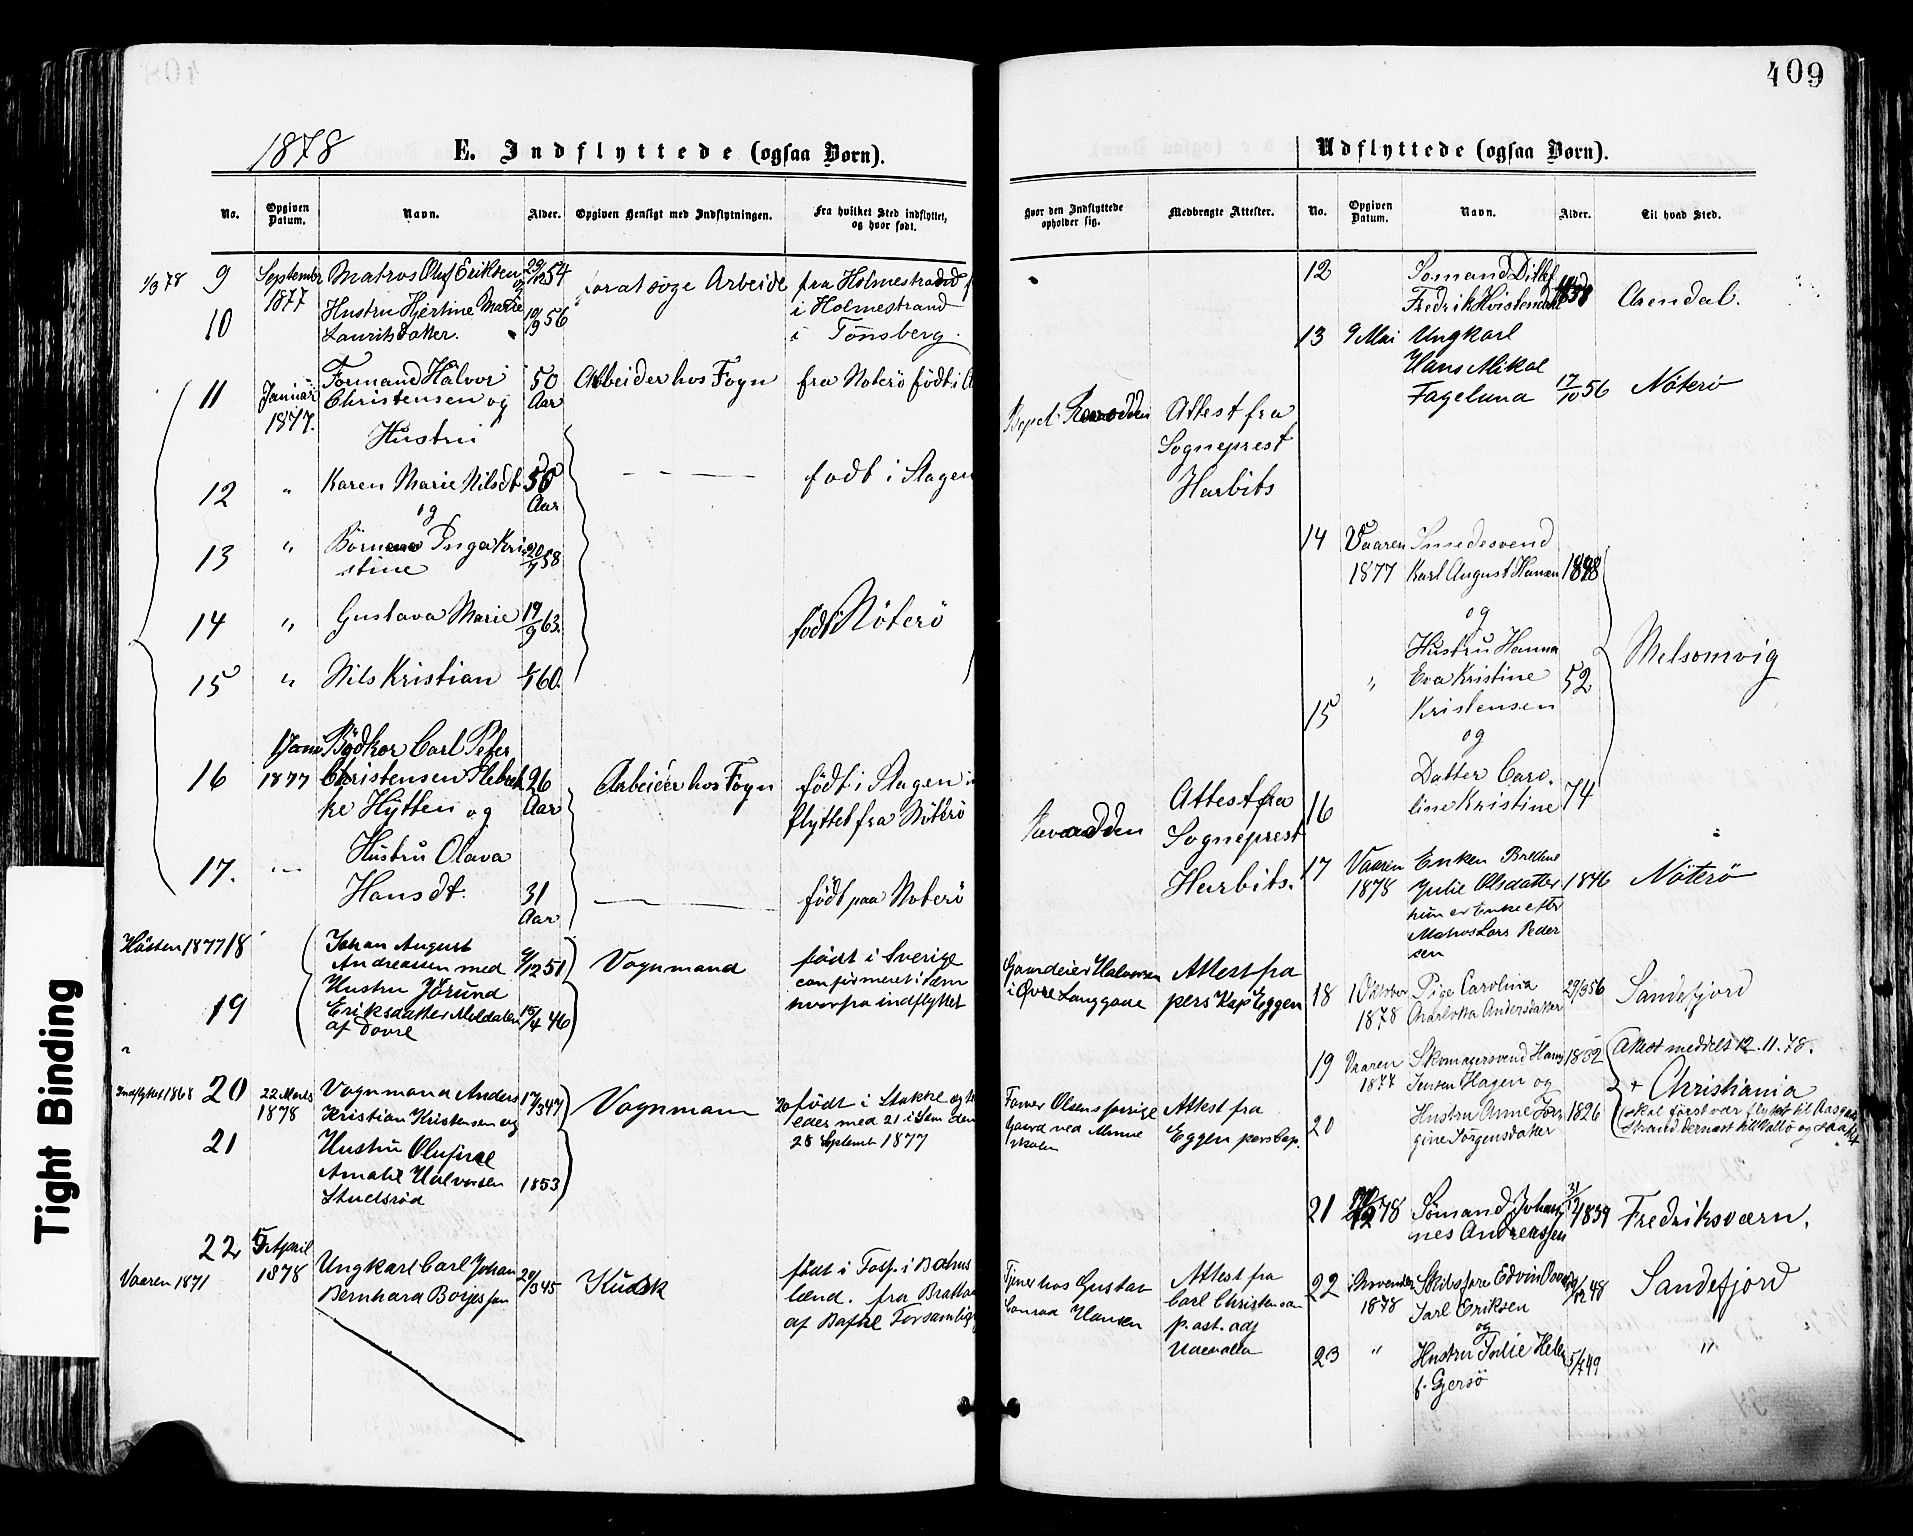 409
1878
E. Indflyttede (ogsaa Børn).
Udflyttede (ogsaa Børn).
No.
Opgiven Datum.
Navn.
Alder.
Opgiven Hensigt med Indflytningen.
Fra hvilket Sted indflyttet, og hvor født.
Hvor den Indflyttede opholder sig.
Medbragte Attester.
No.
Opgiven Datum.
Navn.
Alder.
Til hvad Sted.
9 September 1877 Matros Oluf Eriksen 54 for at søge Arbeide fra Holmestrand
i Holmestrand
10 Hustru Hjertine Marie
Lauritsdatter. 56 i Tønsberg.
11 Januar 1877. Formand Halvor
Christensen og
Hustru
50 Aar
Arbeider hos Foyn
fra Nøterø født i
Attest fra
Sogneprest
Harbits
12 " Karen Marie Nilsdt
og
50 Aar
født i Slagen
13 " Børnene Inga Kri
stine
58
14 " Gustava Marie 19/9 63.
født Nøterø
15 " Nils Kristian 60.
16 1 Jani 1877 Bødker Carl Peter
Christensen
ke Hytten og
26 Aar
Arbeider hos Foyn
født i Slagen
flyttet fra Nøterø
Attest fra
Sogneprest
Harbits.
17. Hustru Olava
Hansdt.
31 Aar
født paa Noterø
Høsten 1877 18 Johan August
Andreassen med
12 51
Vognmand
født i Sverige
confirmeret i Sem
hvorfra indflyttet
Gaardeier Halvorsen
i Øvre Langgade
Attest fra
pers Kap Eggen
19 Hustru Jörund
Eriksdatter Meldalen
af Dovre
15/4 46
Indflyttet 1868 20 22 Marts 1878 Vognmand Anders
Kristian Kristensen og
17/3 47
Vognmann
født i Stokke
edes med 21 i Sem den
28 Septembr 1877
Farver Olsens forrige
Gaard ved Almue
skolen
Attest fra
Eggen pers Cap.
21 Hustru Olufine
Amalie Halvorsen
1853
22 5 April 1878
Vaaren 1871 Ungkarl Carl Johan
Bernhard Börjessen
45
Kudsk
født i Foss. i Bohus
lænd. fra
af
Tjener hos Gustav
Conrad Hansen
Attest fra
Carl Christenson
p. ast. adj
Udevalla
12 Sømand Ditlef
Fredrik Hvistendahl
58
Arendal.
13 9 Mai Ungkarl
Hans Mikal
Fagelund
17/10 56
Nöterö
14 Vaaren 1877 Smedesvend
Karl August Hansen 1848
og
Melsomvig
15 " Hustru Hanna
Eva Kristine
Kristensen
52
og
16 Datter Caro
line Kristine 74
17 Vaaren 1878 Enken
Julie Olsdatter 1846 Nöterö
hun er Enke efter
Matros Lars Peder
sen
18 1 Oktober 1878 Pige Carolina
Charlotta Andersdatter
29/3 56
Sandefjord
19 Vaaren 1877 Skomagersvend Hans 1832
Jensen Hagen og
Attest meddelt 12.11.78.
+ Christiania
20 Hustru Anne Jør
gine Jørgensdatter
1826
skal først vær flyttet til Aasgaard
strand dernæst til Vallø og saa hit
21 78 Sömand Johan
nes Andreassen
31/12 1839
Fredriksværn.
22 November 1878 Skibsfører Edvin
Carl Eriksen
og
12 48
Sandefjord
23 " Hustru Julie Helen
f. Gjersö
5/7 49
"
Tight Binding